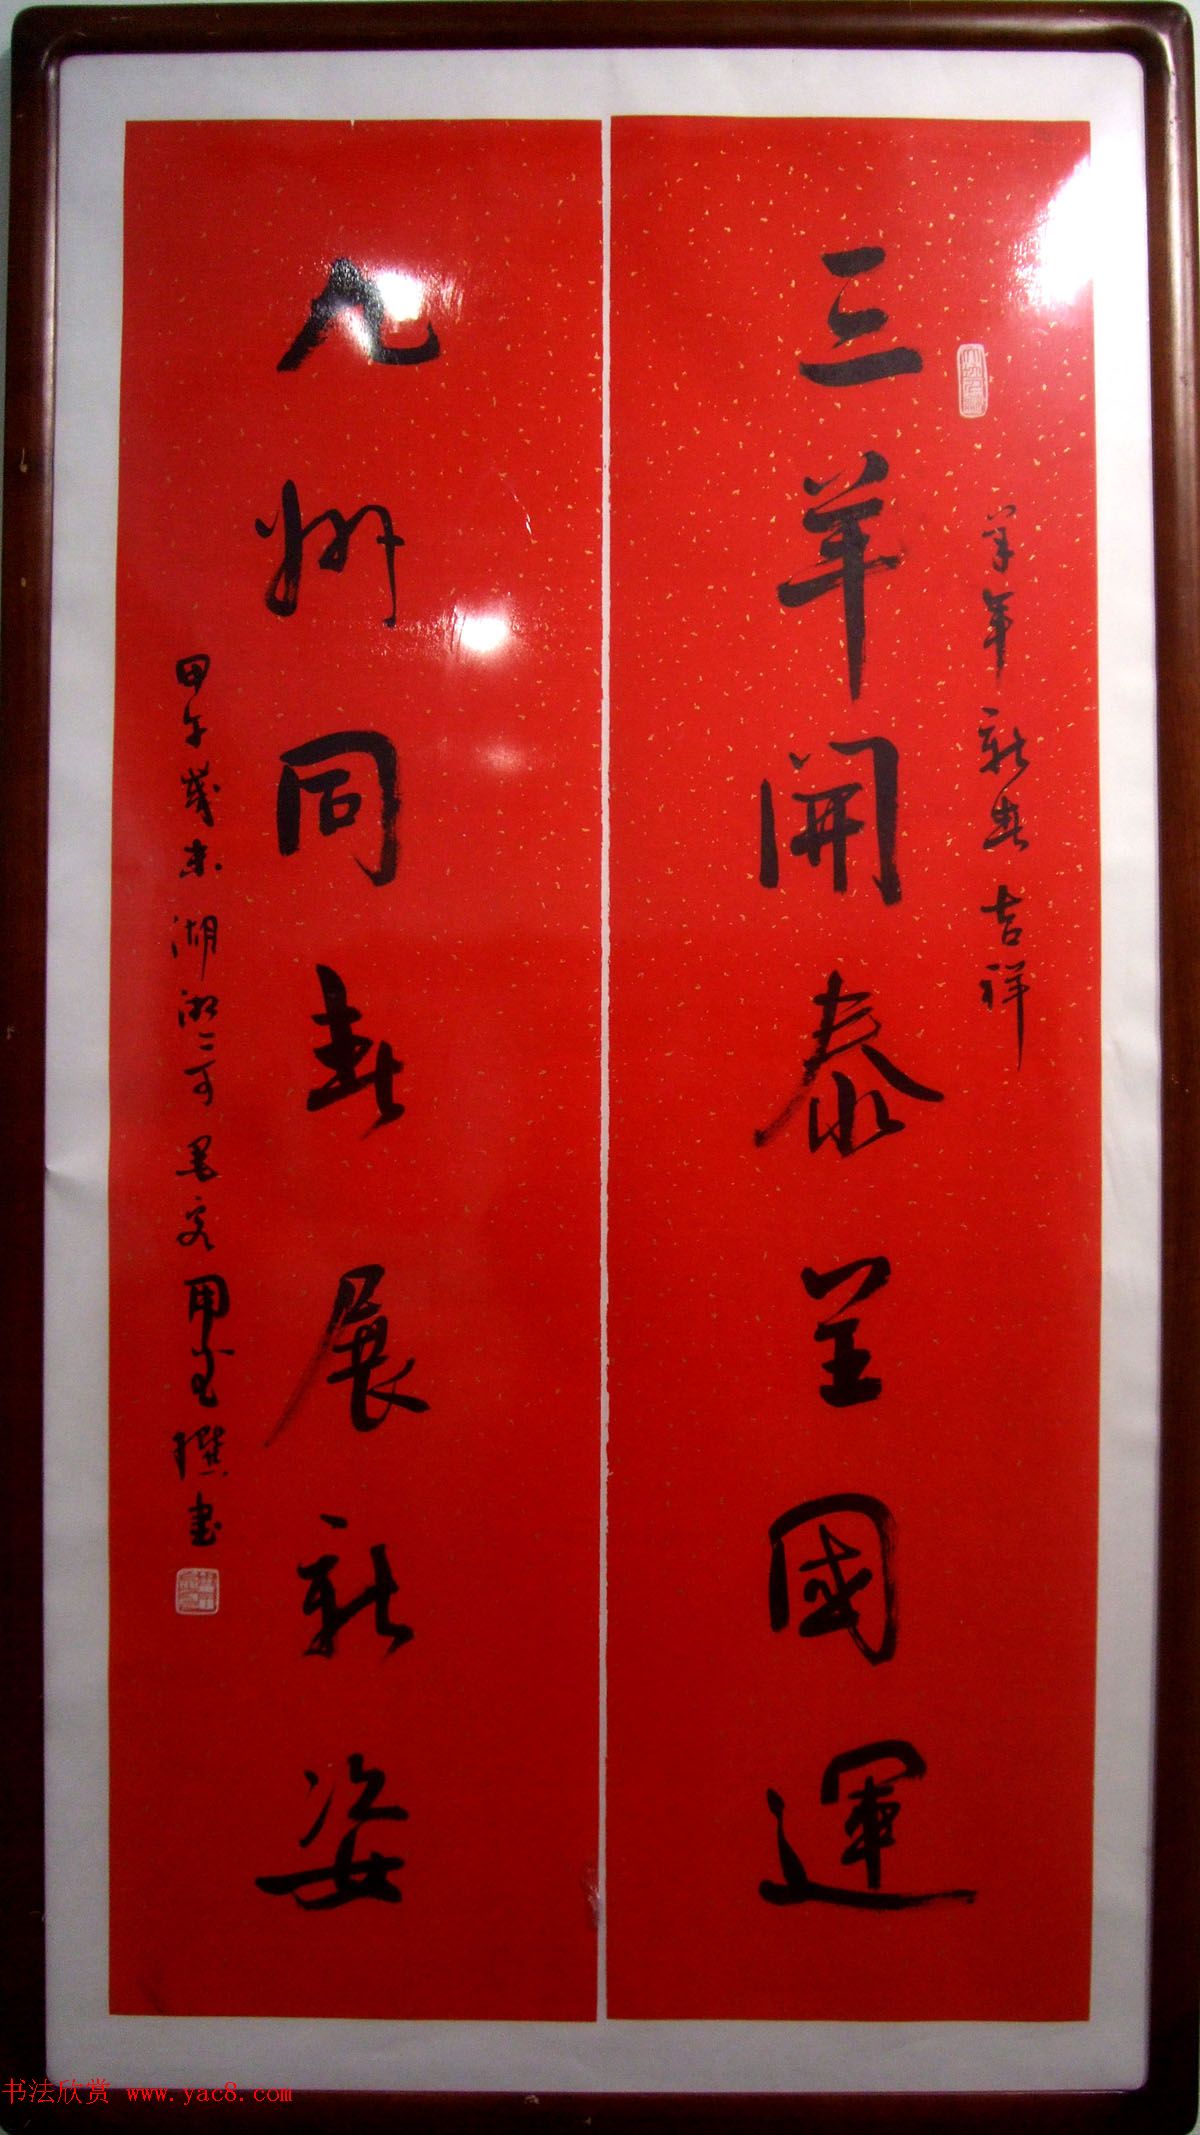 羊年新春吉祥
三羊開泰呈國運
九州同春展新姿
甲午歲末湖湘二可墨客用玉撰書
书法欣赏 www.yac8.com